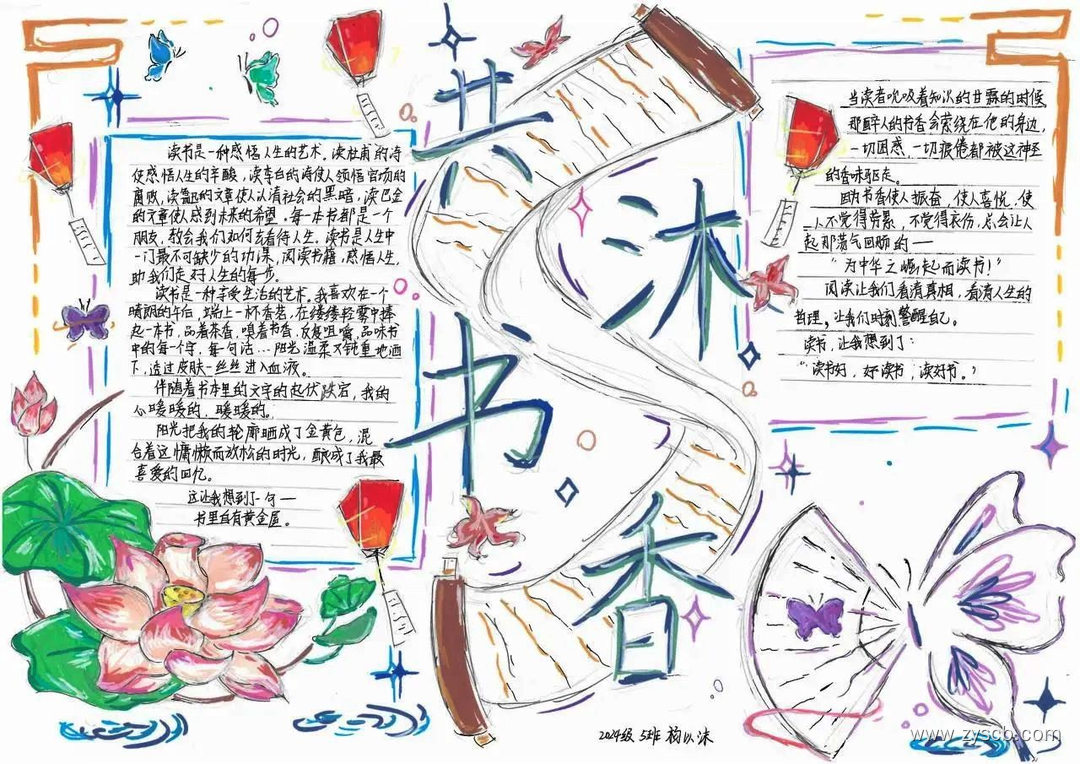 共沐书香
读书是一种感悟人生的艺术。读杜甫的诗
使感悟人生的辛酸，读李白的诗使人领悟官场的
腐败，读鲁迅的文章使人认清社会的黑暗，读巴金
的文章使人感到未来的希望，每一本书都是一个
朋友，教会我们如何去看待人生。读书是人生中
一门最不可缺少的功课，阅读书籍，感悟人生，
助我们走对人生的每步。
读书是一种享受生活的艺术。我喜欢在一个
晴朗的午后，端上一杯香茗，在缕缕轻雾中捧
起一本书，品着茶香，嗅着书香，反复咀嚼，品味书
中的每一个字，每一句话…阳光温柔又钝重地洒
下，透过皮肤一丝丝进入血液。
伴随着书本里的文字的起伏跌宕，我的
心暖暖的，暖暖的。
阳光把我的轮廓晒成了金黄色，混
合着这慵懒而放松的时光，酿成了我最
喜爱的回忆。
这让我想到了一句一
书里自有黄金屋。
当读者吮吸着知识的甘霖的时候
那醉人的书香会萦绕在他的身边，
一切困惑，一切疲倦都被这神圣
的香味驱走。
因为书香使人振奋，使人喜悦，使
人不觉得劳累，不觉得哀伤，总会让人
起那荡气回肠的一
“为中华之崛起而读书！”
阅读让我们看清真相，看清人生的
哲理。让我们时刻警醒自己。
读书，让我想到了：
“读书好，好读书，读好书。”
2024级 5班 杨以沫
www.zyscb.com